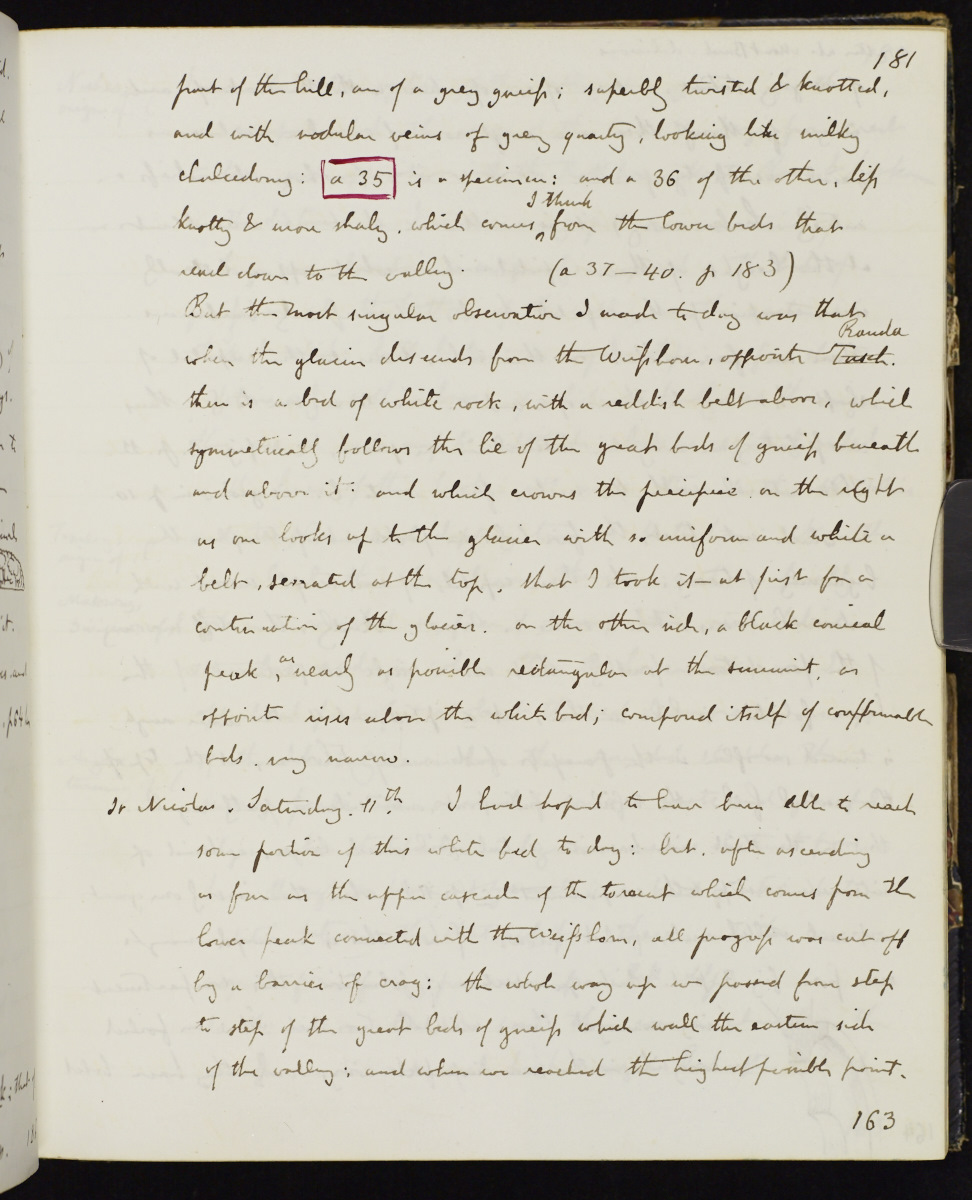 181
front of the hill, are of a grey gneiss; superbly twisted & knotted,
and with nodular veins of grey quartz, looking like milky
chalcedony: a 35 is a specimen: and a 36 of the other, less
I think
knotty & more shaly, which comes ^ from the lower beds that
reach down to the valley. (a 37–40. p 183)
But the most singular observation I made to day was that
Randa
when the glacier descends from the Weisshorn, opposite Tasch.
there is a bed of white rock, with a reddish belt above, which
symmetrically follows the lie of the great beds of gneiss beneath
and above it: and which crowns the precipice on the right
as one looks up to the glacier with so uniform and white a
belt, serrated at the top, that I took it – at first for a
continuation of the glacier. on the other side, a black conical
peak, as nearly as possible rectangular at the summit, as
opposite rises above the white bed; composed itself of conformable
beds. very narrow.
St Nicolas. Saturday. 11th. I had hoped to have been able to reach
some portion of this white bed to day: but. after ascending
as far as the upper cascade of the torrent which comes from the
lower peak connected with the Weisshorn, all progress was cut off
by a barrier of crag: the whole way up we passed from step
to step of the great beds of gneiss which wall the eastern side
of the valley; and when we reached the highest possible point.
163